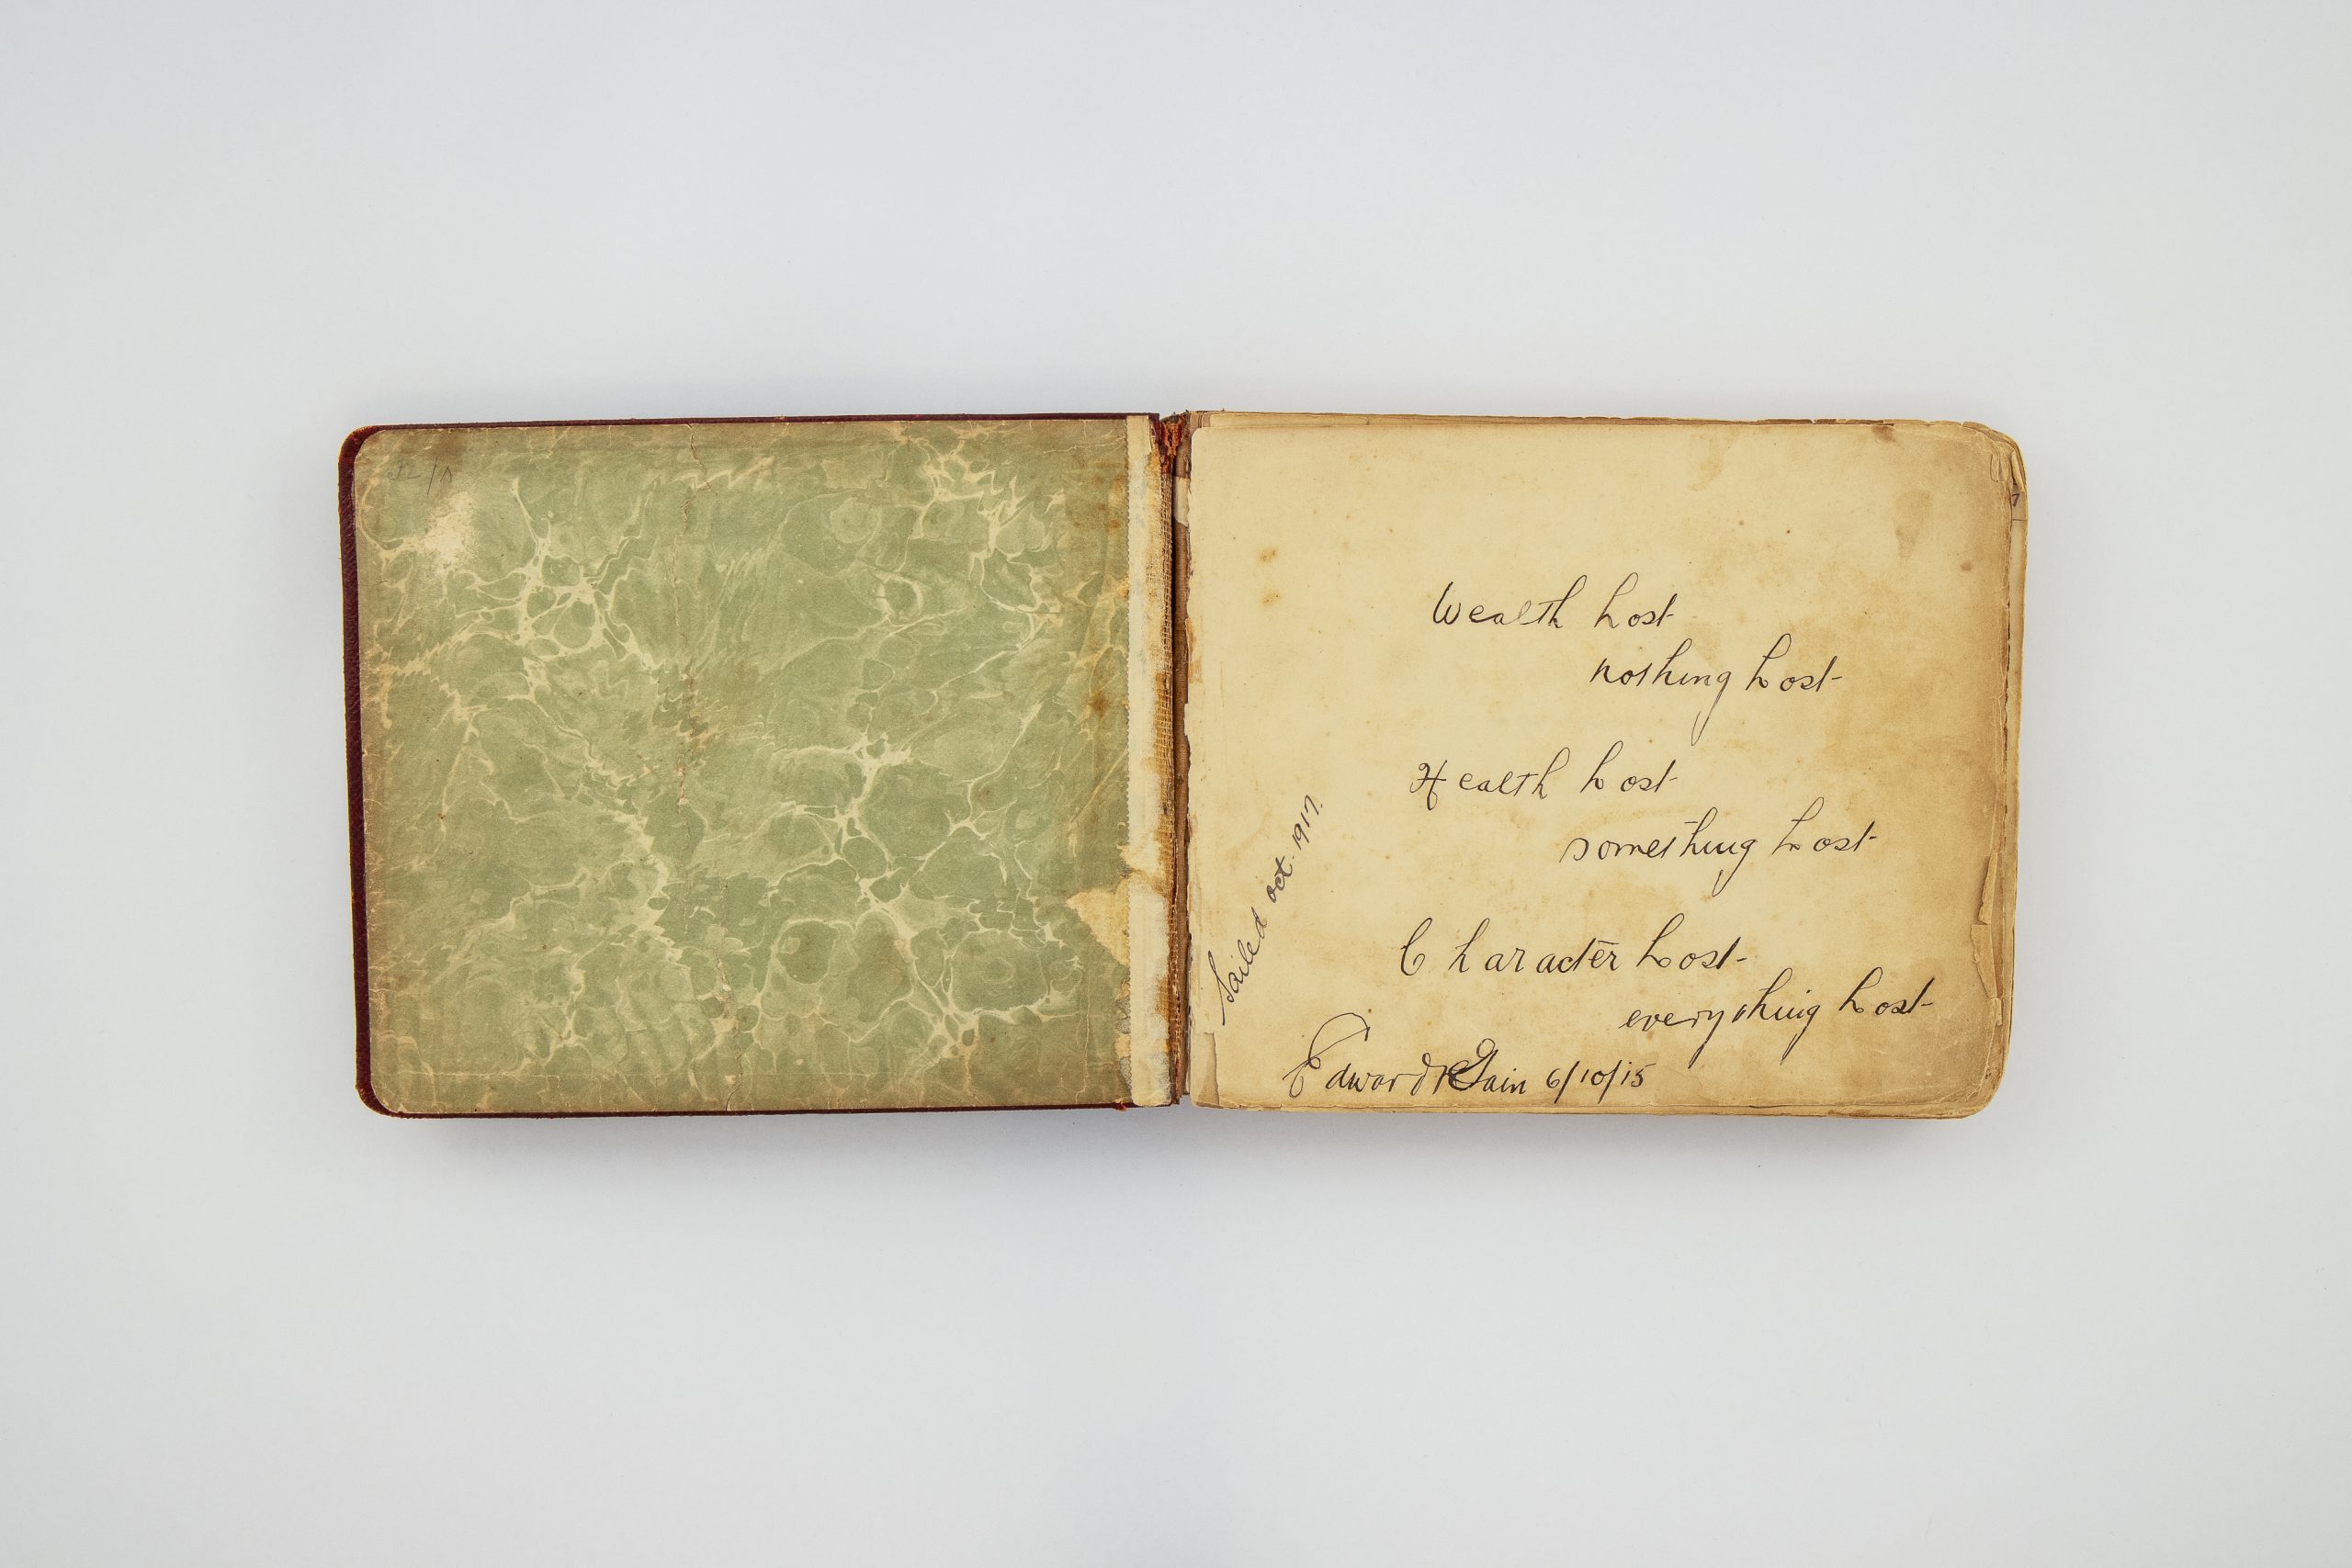 Wealth Lost
nothing Lost
Health Lost
something Lost
Character Lost
everything Lost
Sailed Oct. 1917.
Edward Gain 6/10/15